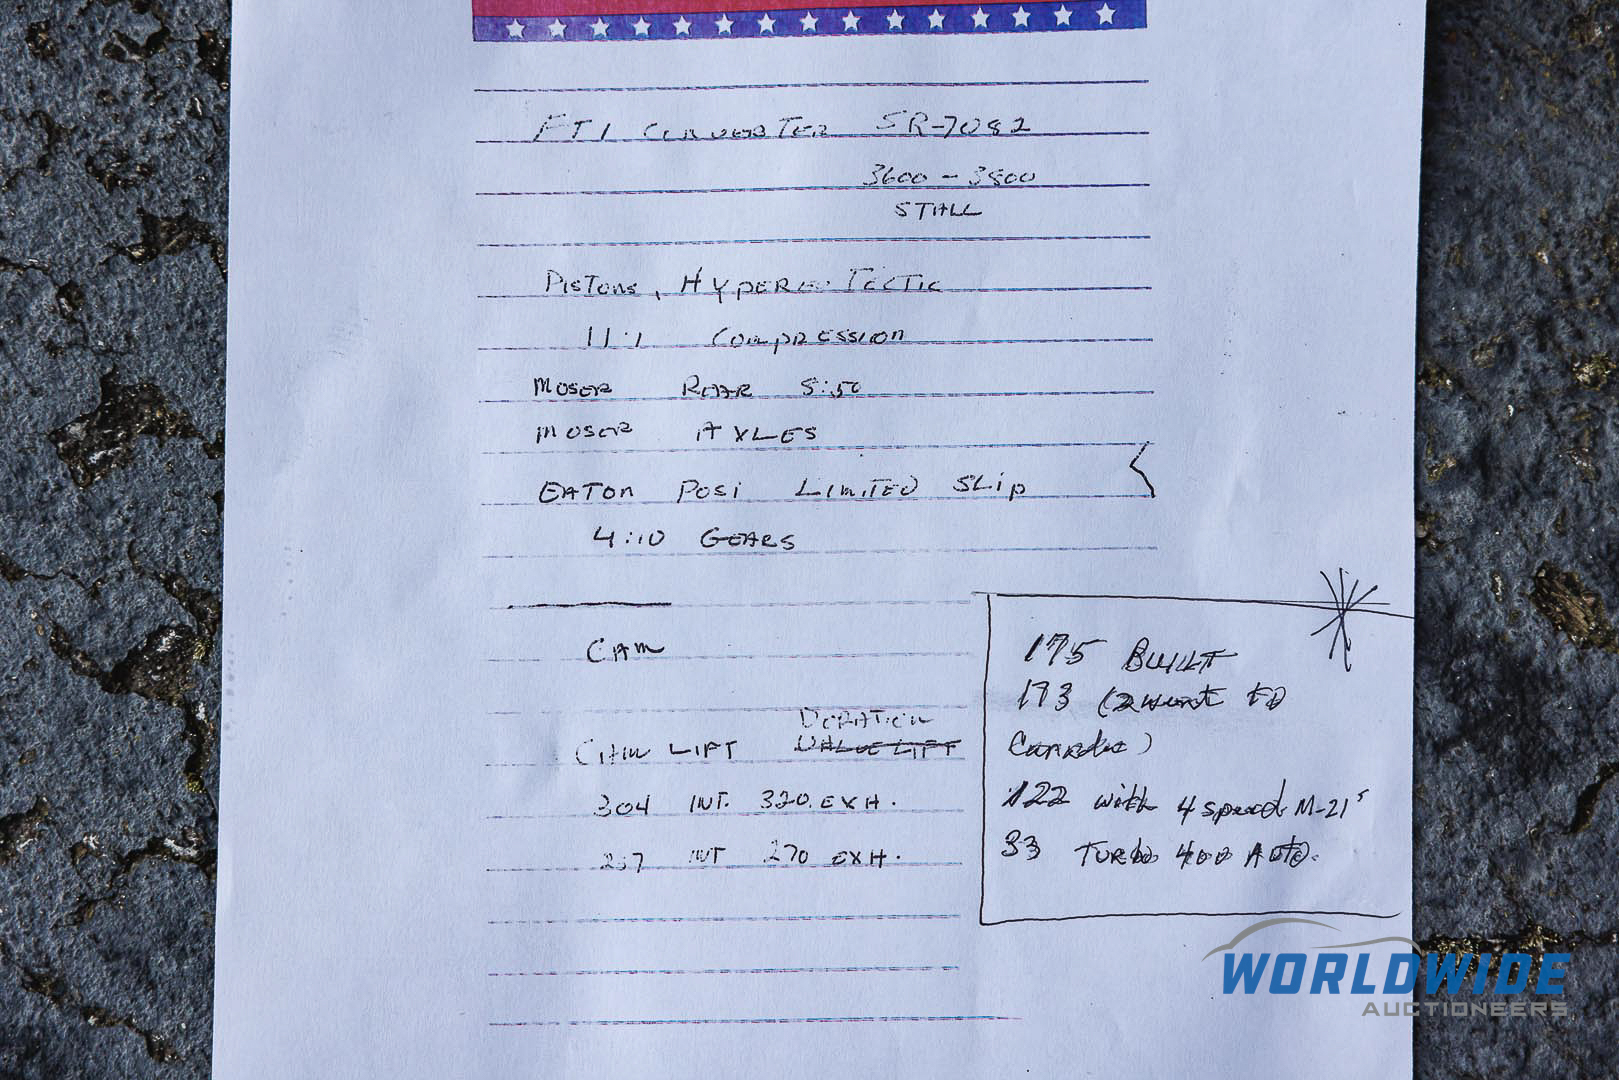 FTI CONVERTER SR-7082
3600 - 3800
STALL
PISTONS, HYPEREUTECTIC
11:1 COMPRESSION
MOSER REAR
MOSER AXLES
EATON POSI LIMITED SLIP
4:10 GEARS
CAM
DURATION
CAM LIFT VALVE LIFT
304 INT. 320. EXH.
INT 270 EXH.
175 BUILT
173 (2 went to
Canada)
122 with 4 speed M-21's
33 TURBO 400 AUTO.
WORLDWIDE
AUCTIONEERS